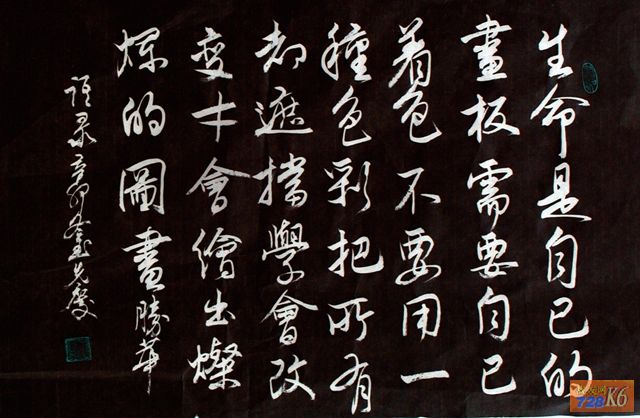 生命是自己的
畫板需要自己
着色不要用一
種色彩把所有
都遮擋學會改
变才會繪出燦
爛的圖畫勝華
语录辛卯
728 K6